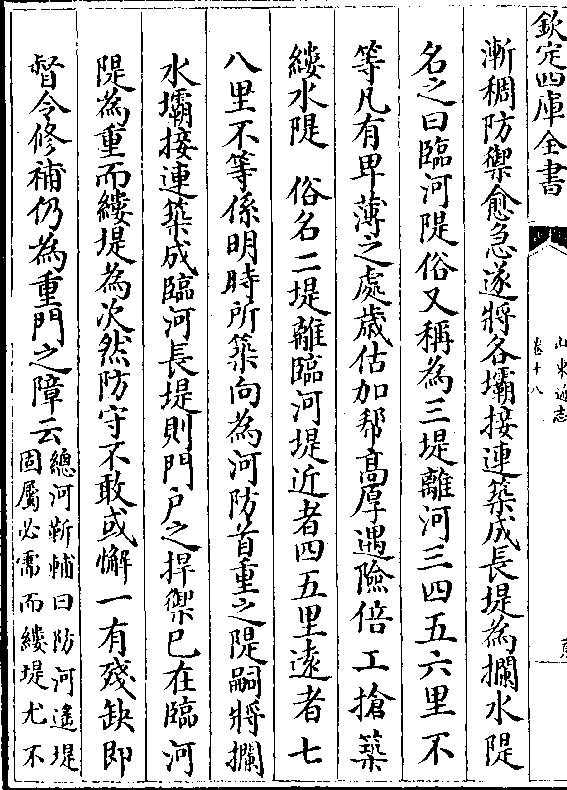 欽定四庫全書
山東通志
卷十八
漸稠防禦愈急遂將各壩接連築成長堤為攔水隄
名之曰臨河隄俗又稱為三堤離河三四五六里不
等凡有卑薄之處歲估加幇高厚遇險倍工搶築
縷水隄 俗名二堤離臨河堤近者四五里遠者七
八里不等係明時所築向為河防首重之隄嗣將攔
水壩接連築成臨河長堤則門戶之捍禦已在臨河
隄為重而縷堤為次然防守不敢或懈一有殘缺即
督令修補仍為重門之障云
總河靳輔曰防河遙堤
固屬必需而縷堤尤不